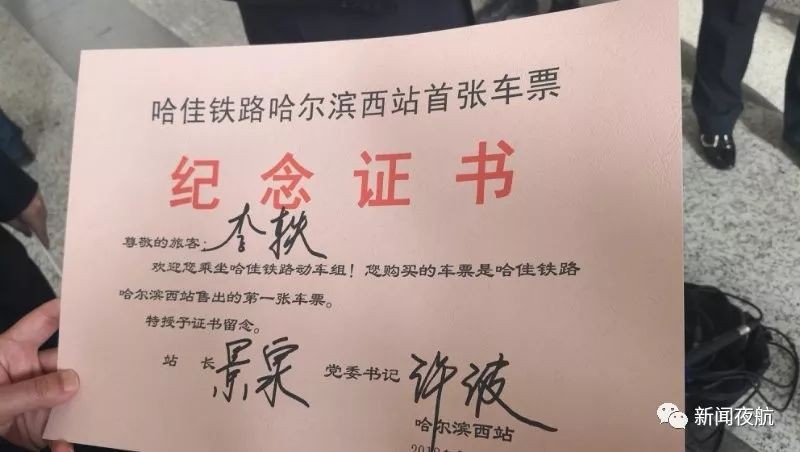 哈佳铁路哈尔滨西站首张车票
纪念证书
尊敬的旅客：李轶
欢迎您乘坐哈佳铁路动车组！您购买的车票是哈佳铁路
哈尔滨西站售出的第一张车票。
特授予证书留念。
站 长 景泉 党委书记 许波
哈尔滨西站
新闻夜航